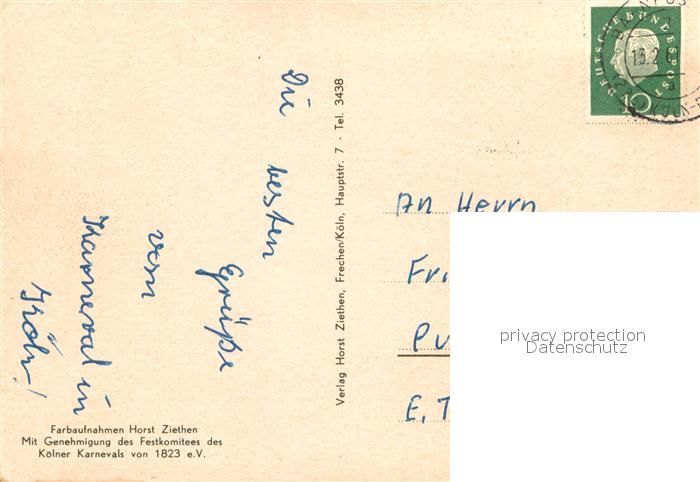 Die besten
Grüße
vom
Karneval in
Köln!
Farbaufnahmen Horst Ziethen
Mit Genehmigung des Festkomitees des
Kölner Karnevals von 1823 e.V.
Verlag Horst Ziethen, Frechen/Köln, Hauptstr. 7 - Tel. 3438
DEUTSCHE BUNDESPOST
10
13.2.6
a
KÖLN-
An Herrn
Fri
Pu
E.T
privacy protection
Datenschutz